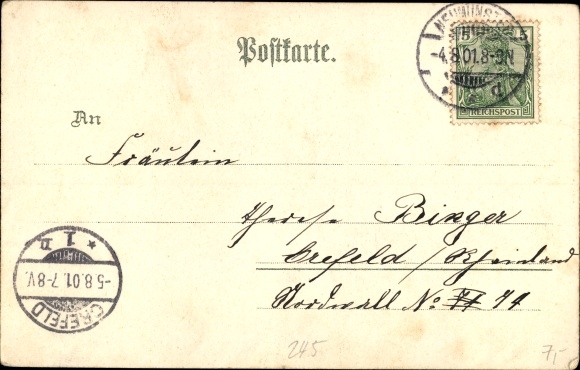 Postkarte.
5
-4.8.01.8-9N
REICHSPOST
An
Fräulein
Therese Binger
Crefeld / Rheinland
Nordwall No 74
* 1 D *
-5.8.01.7-8V.
CREFELD
245
7,-